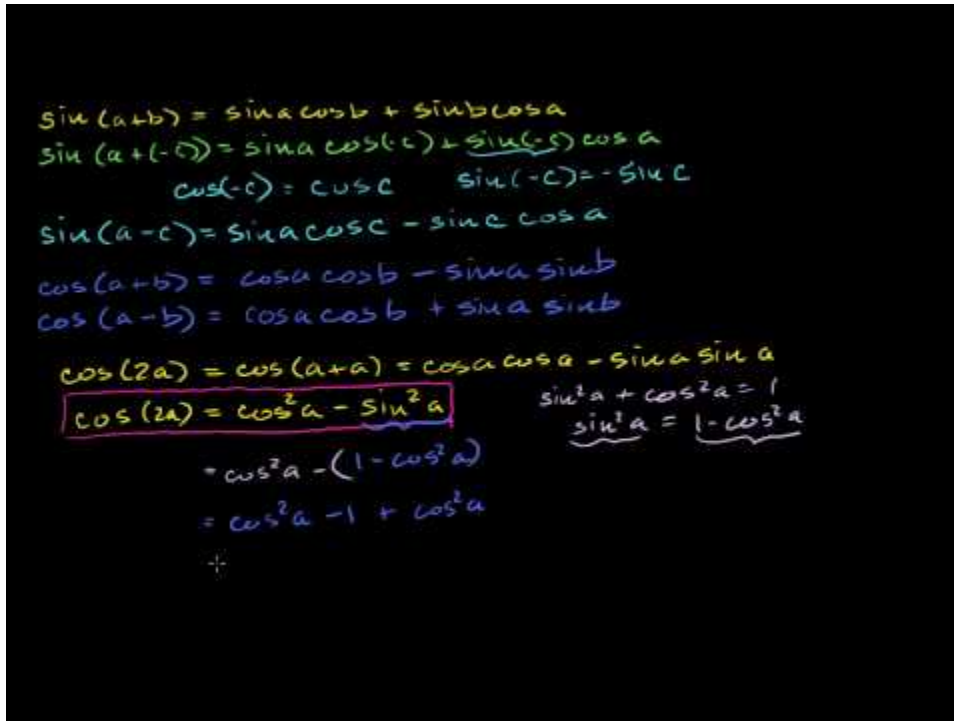 sin(a+b) = sina cosb + sinb cosa
sin(a+(-c)) = sina cos(-c) + sin(-c) cos a
cos(-c) = cosc sin(-c) = -sin c
sin(a-c) = sina cosc - sinc cos a
cos(a+b) = cosa cosb - sina sinb
cos(a-b) = cosa cosb + sina sinb
cos(2a) = cos(a+a) = cosa cosa - sina sin a
cos(2a) = cos²a - sin²a
sin²a + cos²a = 1
sin²a = 1-cos²a
= cos²a - (1-cos²a)
= cos²a - 1 + cos²a